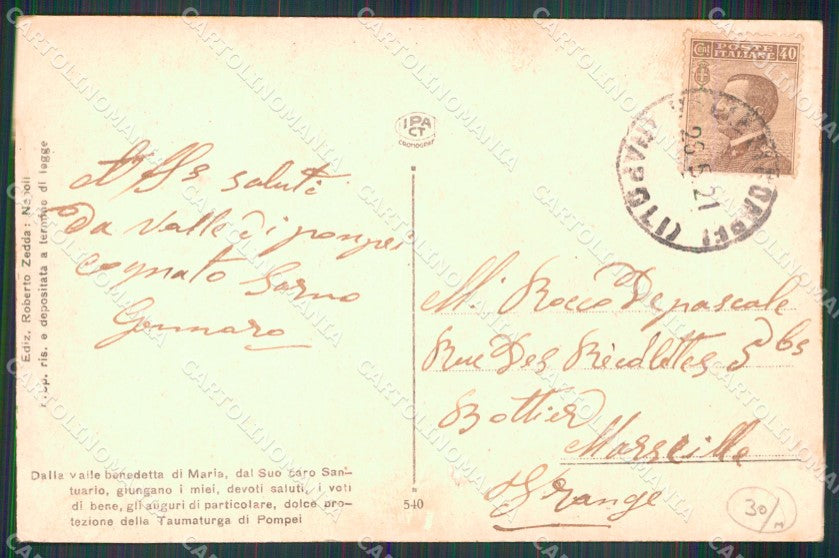 Cent POSTE 40
ITALIANE
(NAPOLI)
23.5.21
IPA
CT
saluti
Da Valle di pompei
cognato Sarno
Gennaro
M. Rocco Depascale
Rue Des Récolettes 5 bs
Bottier
Marseille
Frange
Ediz. Roberto Zedda: Napoli
Prop. ris. e depositata a termine di legge
Dalla valle benedetta di Maria, dal Suo caro San-
tuario, giungano i miei, devoti saluti, i voti
di bene, gli auguri di particolare, dolce pro-
tezione della Taumaturga di Pompei
540
30/M
CARTOLINOMANIA